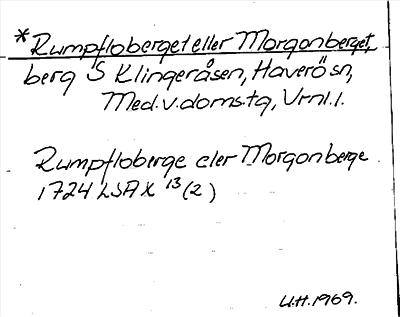 *Rumpflobergeteller Morgonberget,
berg S Klingeråsen, Haverö sn,
Med.v.doms.tg, Vrnl.l.
Rumpfloberge eler Morgonberge
1724 LSA X 13(2)
U.H. 1969.